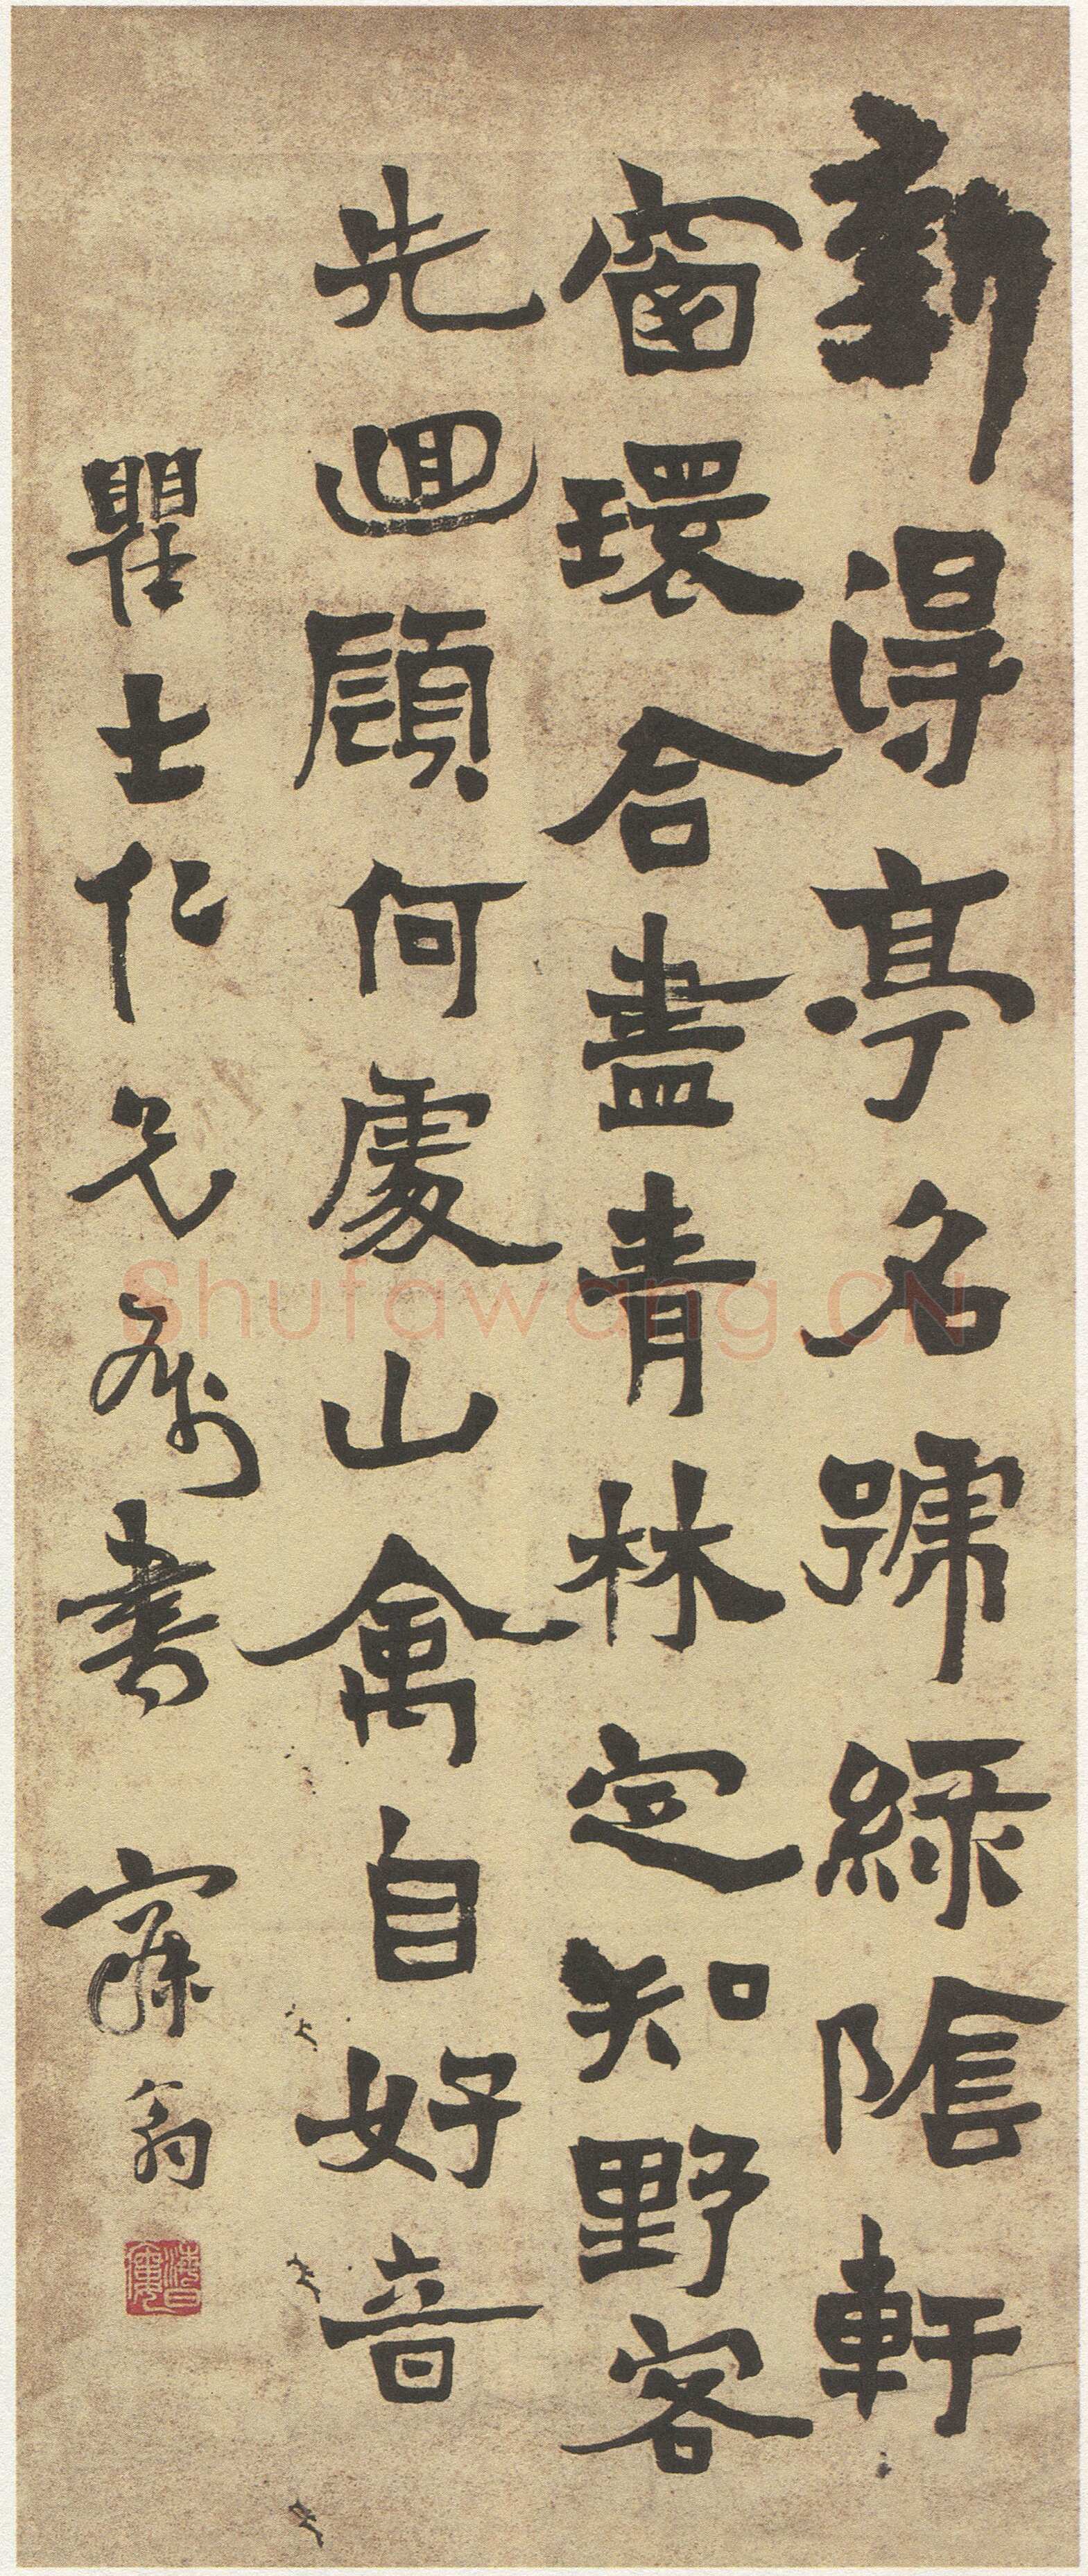 新得亭名號綠陰軒
窗環合盡青林定知野客
先迴顧何處山禽自好音
瞿士仁兄屬書 寐翁
Shufawang.CN